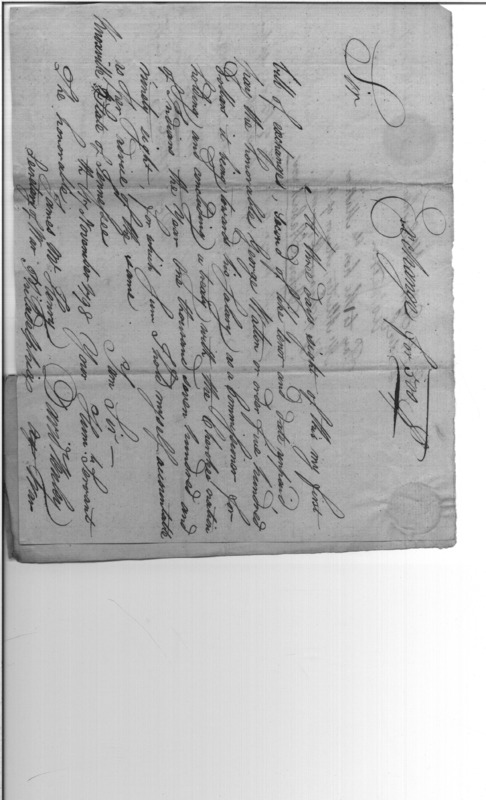 Exchange for 500 D
Sir
At three days sight of this my first
bill of exchange, second of the tenor and date unpaid
pay the honorable George Walton or order five hundred
Dollars it being his salary as a Commissioner for
holding and concluding a treaty with the Cherokee nation
of Indians the Year One thousand seven hundred and
ninety eight for which sum I hold myself accountable
as per advice of the same
I am Sir
Knoxville State of Tennessee
8th November 1798 Your Hum Servant
The honorable David Henley
James McHenry
Secretary of War Philadelphia Agt War